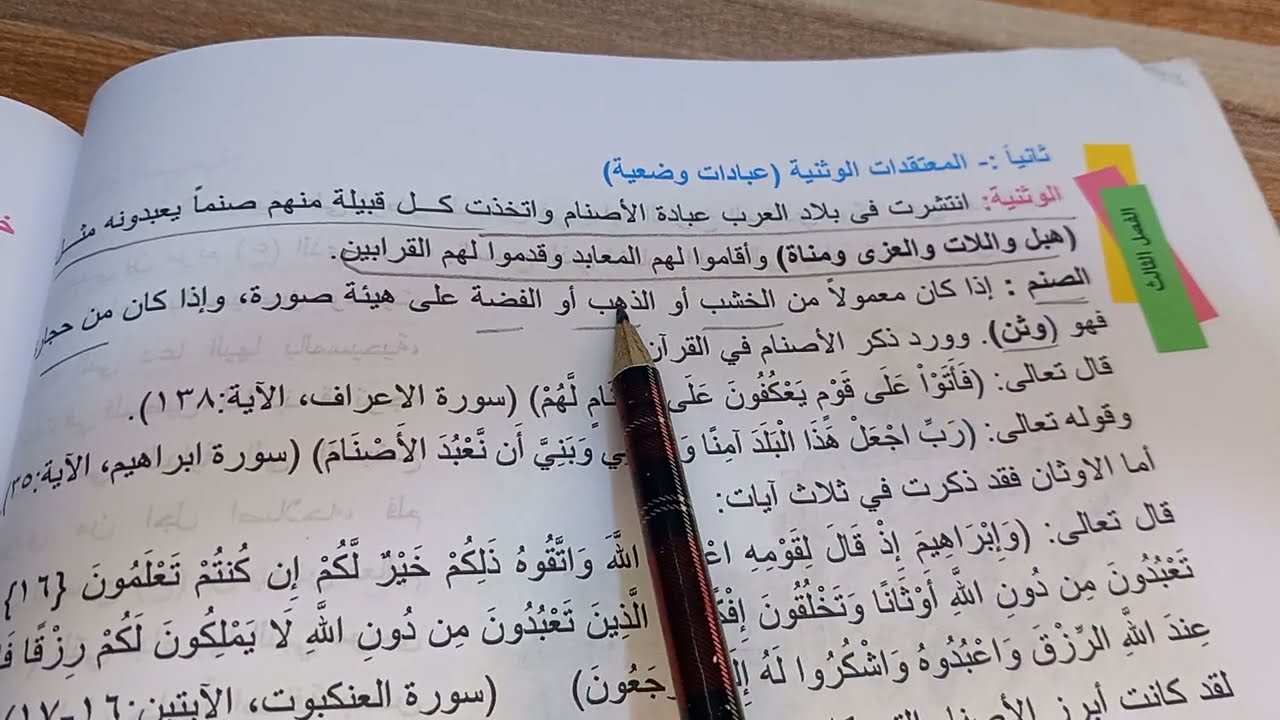 ثانياً :- المعتقدات الوثنية (عبادات وضعية)
الوثنية: انتشرت في بلاد العرب عبادة الأصنام واتخذت كل قبيلة منهم صنماً يعبدونه مثل
(هبل واللات والعزى ومناة) وأقاموا لهم المعابد وقدموا لهم القرابين.
الصنم : إذا كان معمولاً من الخشب أو الذهب أو الفضة على هيئة صورة، وإذا كان من
فهو (وثن). وورد ذكر الأصنام في القرآن
قال تعالى: (فَأَتَوْاْ عَلَى قَوْمٍ يَعْكُفُونَ عَلَى لَّهُمْ) (سورة الاعراف، الآية:١٣٨).
وقوله تعالى: (رَبِّ اجْعَلْ هَذَا الْبَلَدَ آمِنًا وَبَنِيَّ أَن نَّعْبُدَ الأَصْنَامَ) (سورة ابراهيم، الآية:٣٥)
أما الاوثان فقد ذكرت في ثلاث آيات:
قال تعالى: (وَإِبْرَاهِيمَ إِذْ قَالَ لِقَوْمِهِ اللَّهَ وَاتَّقُوهُ ذَلِكُمْ خَيْرٌ لَّكُمْ إِن كُنتُمْ تَعْلَمُونَ {١٦}
تَعْبُدُونَ مِن دُونِ اللَّهِ أَوْثَانًا وَتَخْلُقُونَ الَّذِينَ تَعْبُدُونَ مِن دُونِ اللَّهِ لَا يَمْلِكُونَ لَكُمْ رِزْقًا
عِندَ اللَّهِ الرِّزْقَ وَاعْبُدُوهُ وَاشْكُرُوا لَهُ (سورة العنكبوت، الآيتين:١٦-١٧)
لقد كانت أبرز الأصنام
الفصل الثالث